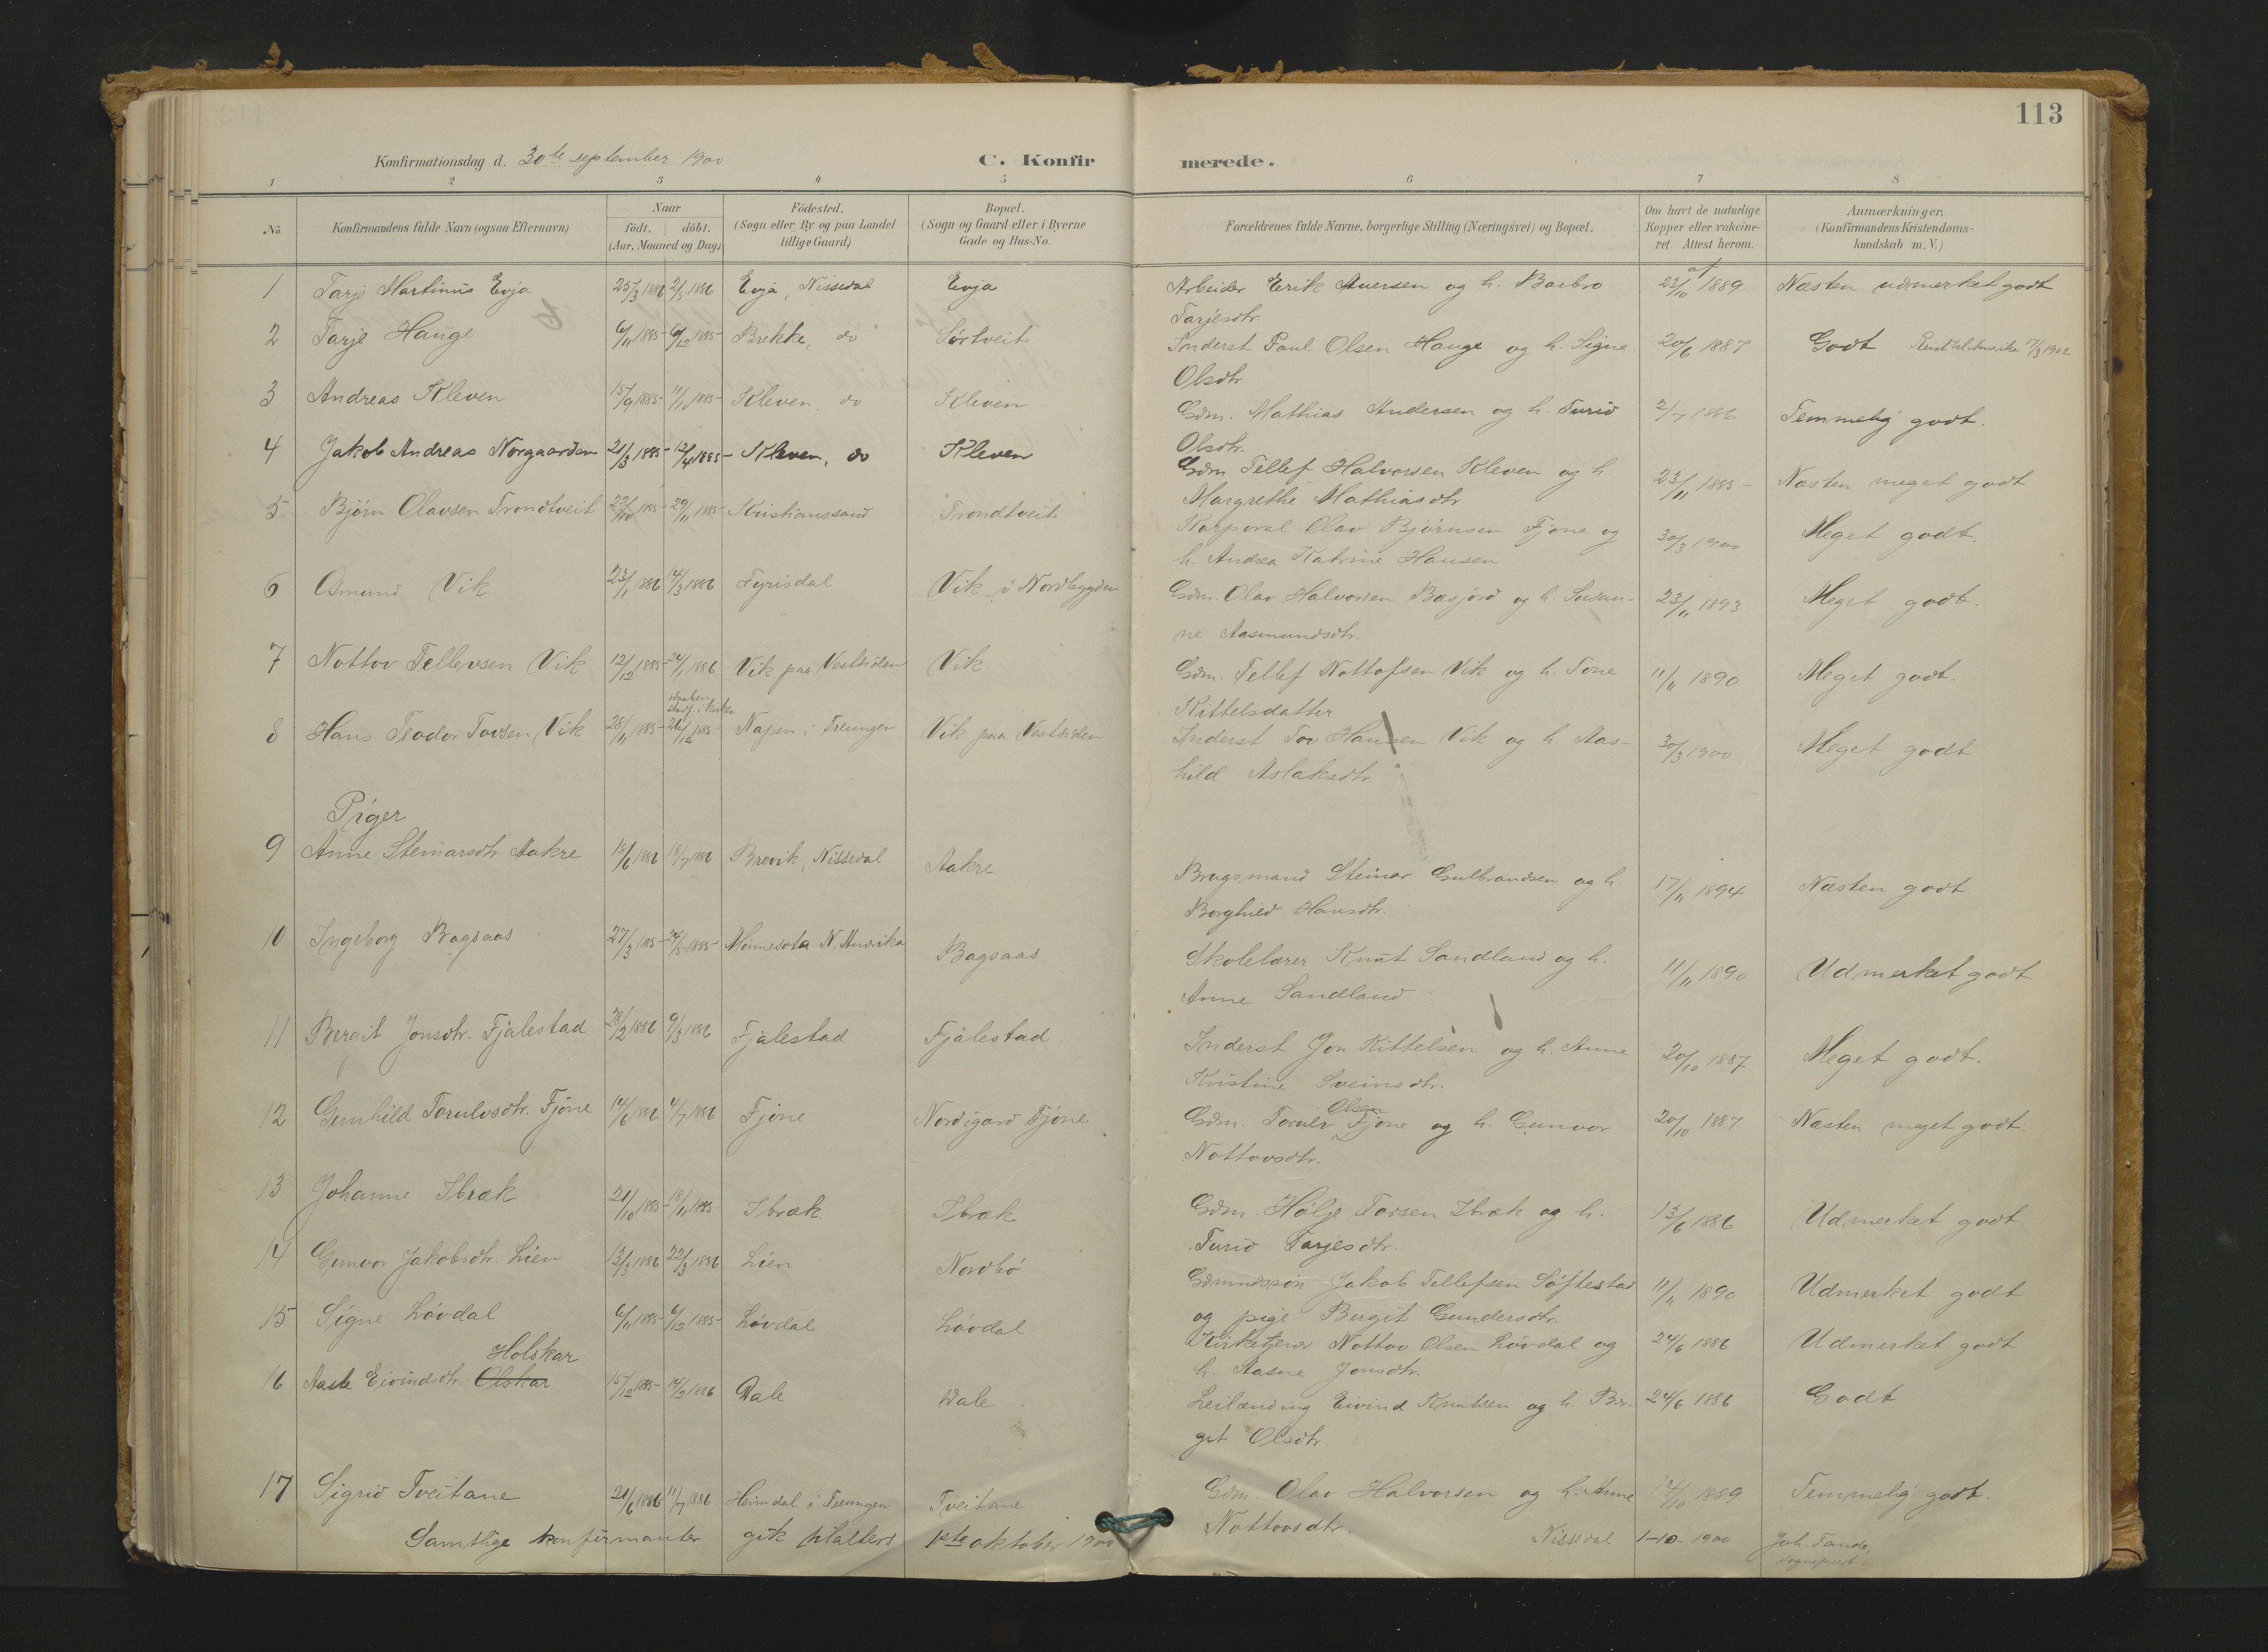 113
Konfirmationsdag d. 30te september 1900 C. Konfirmerede.
1 2 3 4 5 6 7 8
No. Konfirmandens fulde Navn (ogsaa Efternavn) Naar født. døbt. (Aar, Maaned og Dag) Fødested. (Sogn eller By og paa Landet tillige Gaard) Bopæl. (Sogn og Gaard eller i Byerne Gade og Hus-No. Forældrenes fulde Navne, borgerlige Stilling (Næringsvei) og Bopæl. Om havt de naturlige Kopper eller vakcineret. Attest herom. Anmærkninger. (Konfirmandens Kristendomskundskab m. V.)
1 Tarje Martinus Evja 25/3 1886 2/5 1886 Evja, Nissedal Evja Arbeider Erik Auersen og h. Barbro 23/10 1889 Næsten udmerket godt
Tarjesdtr.
2 Tarje Hauge 6/11 1885 6/12 1885 Brekke, do Sørtveit Inderst Paul Olsen Hauge og h. Signe 20/6 1887 Godt Reist til Amerika 17/3 1902
Olsdtr
3 Andreas Kleven 15/9 1885 11/10 1885 Kleven, do Kleven Gdm. Mathias Andersen og h. Turid 2/7 1886 Temmelig godt.
Olsdtr.
4 Jakob Andreas Norgaarden 21/3 1885 12/4 1885 Kleven, do Kleven Gdm Tellef Halvorsen Kleven og h. 23/11 1885 Næsten meget godt
Margrethe Mathiasdtr
5 Bjørn Olavsen Trondtveit 22/10 1885 29/11 1885 Kristianssand Trondtveit Korporal Olav Bjørnsen Fjone og 30/3 1900 Meget godt.
h. Andrea Katrine Hansen
6 Osmund Vik 23/1 1886 14/3 1886 Fyrisdal Vik i Nordbygden Gdm. Olav Halvorsen Bæsjord og h. Susan- 23/11 1893 Meget godt.
ne Aasmundsdtr.
7 Nottov Tellevsen Vik 12/12 1885 24/1 1886 Vik paa Vestsiden Vik Gdm. Tellef Nottofsen Vik og h. Tone 11/11 1890 Meget godt.
Kittelsdatter
stadf. i kirken
8 Hans Teodor Tovsen Vik 28/11 1885 26/12 1885 Napen i Treungen Vik paa Vestsiden Inderst Tov Hansen Vik og h. Aas- 30/3 1900 Meget godt
hild Aslaksdtr.
Piger
9 Anne Steinarsdtr Aakre 18/6 1886 18/7 1886 Brevik, Nissedal Aakre Brugsmand Steinar Gulbrandsen og h. 17/11 1894 Næsten godt.
Borghild Hansdtr.
10 Ingeborg Bagsaas 27/3 1885 24/5 1885 Minnesota N. Amerika Bagsaas Skolelærer Knut Sandland og h. 11/11 1890 Udmerket godt
Anne Sandland
11 Bergit Jonsdtr. Fjalestad 28/2 1886 9/3 1886 Fjalestad Fjalestad Inderst Jon Kittelsen og h. Anne 20/10 1887 Meget godt.
Kristine Sveinsdtr.
12 Gunhild Torulvsdtr. Fjone 14/6 1886 4/7 1886 Fjone Nordigard Fjone Gdm. Torulv Olsen Fjone og h. Gunvor 20/10 1887 Næsten meget godt.
Nottovsdtr.
13 Johanne Ibræk 21/10 1885 18/11 1885 Ibræk Ibræk Gdm. Hølje Torsen Ibræk og h. 13/6 1886 Udmerket godt
Turid Tarjesdtr.
14 Gunvor Jakobsdtr. Lien 13/3 1886 22/3 1886 Lien Nordbø Gdmandssøn Jakob Tellefsen Søftestad 11/11 1890 Udmerket godt
og pige Bergit Gundersdtr.
15 Signe Løvdal 6/11 1885 6/12 1885 Løvdal Løvdal Kirketjener Nottov Olsen Løvdal og 24/6 1886 Udmerket godt
h. Aasne Jonsdtr.
Holskar
16 Aaste Eivindsdtr. Olskar 15/12 1885 14/2 1886 Dale Dale Leilænding Eivind Knutsen og h. Ber- 24/6 1886 Godt
git Olsdtr.
17 Sigrid Tveitane 21/6 1886 11/7 1886 Heimdal i Treungen Tveitane Gdm. Olav Halvorsen og h. Anne /10 1889 Temmelig godt.
Nottovsdtr.
Samtlige konfirmanter gik tilalters 1ste oktober 1900 Nissedal 1-10-1900 Joh. Tande,
sogneprest